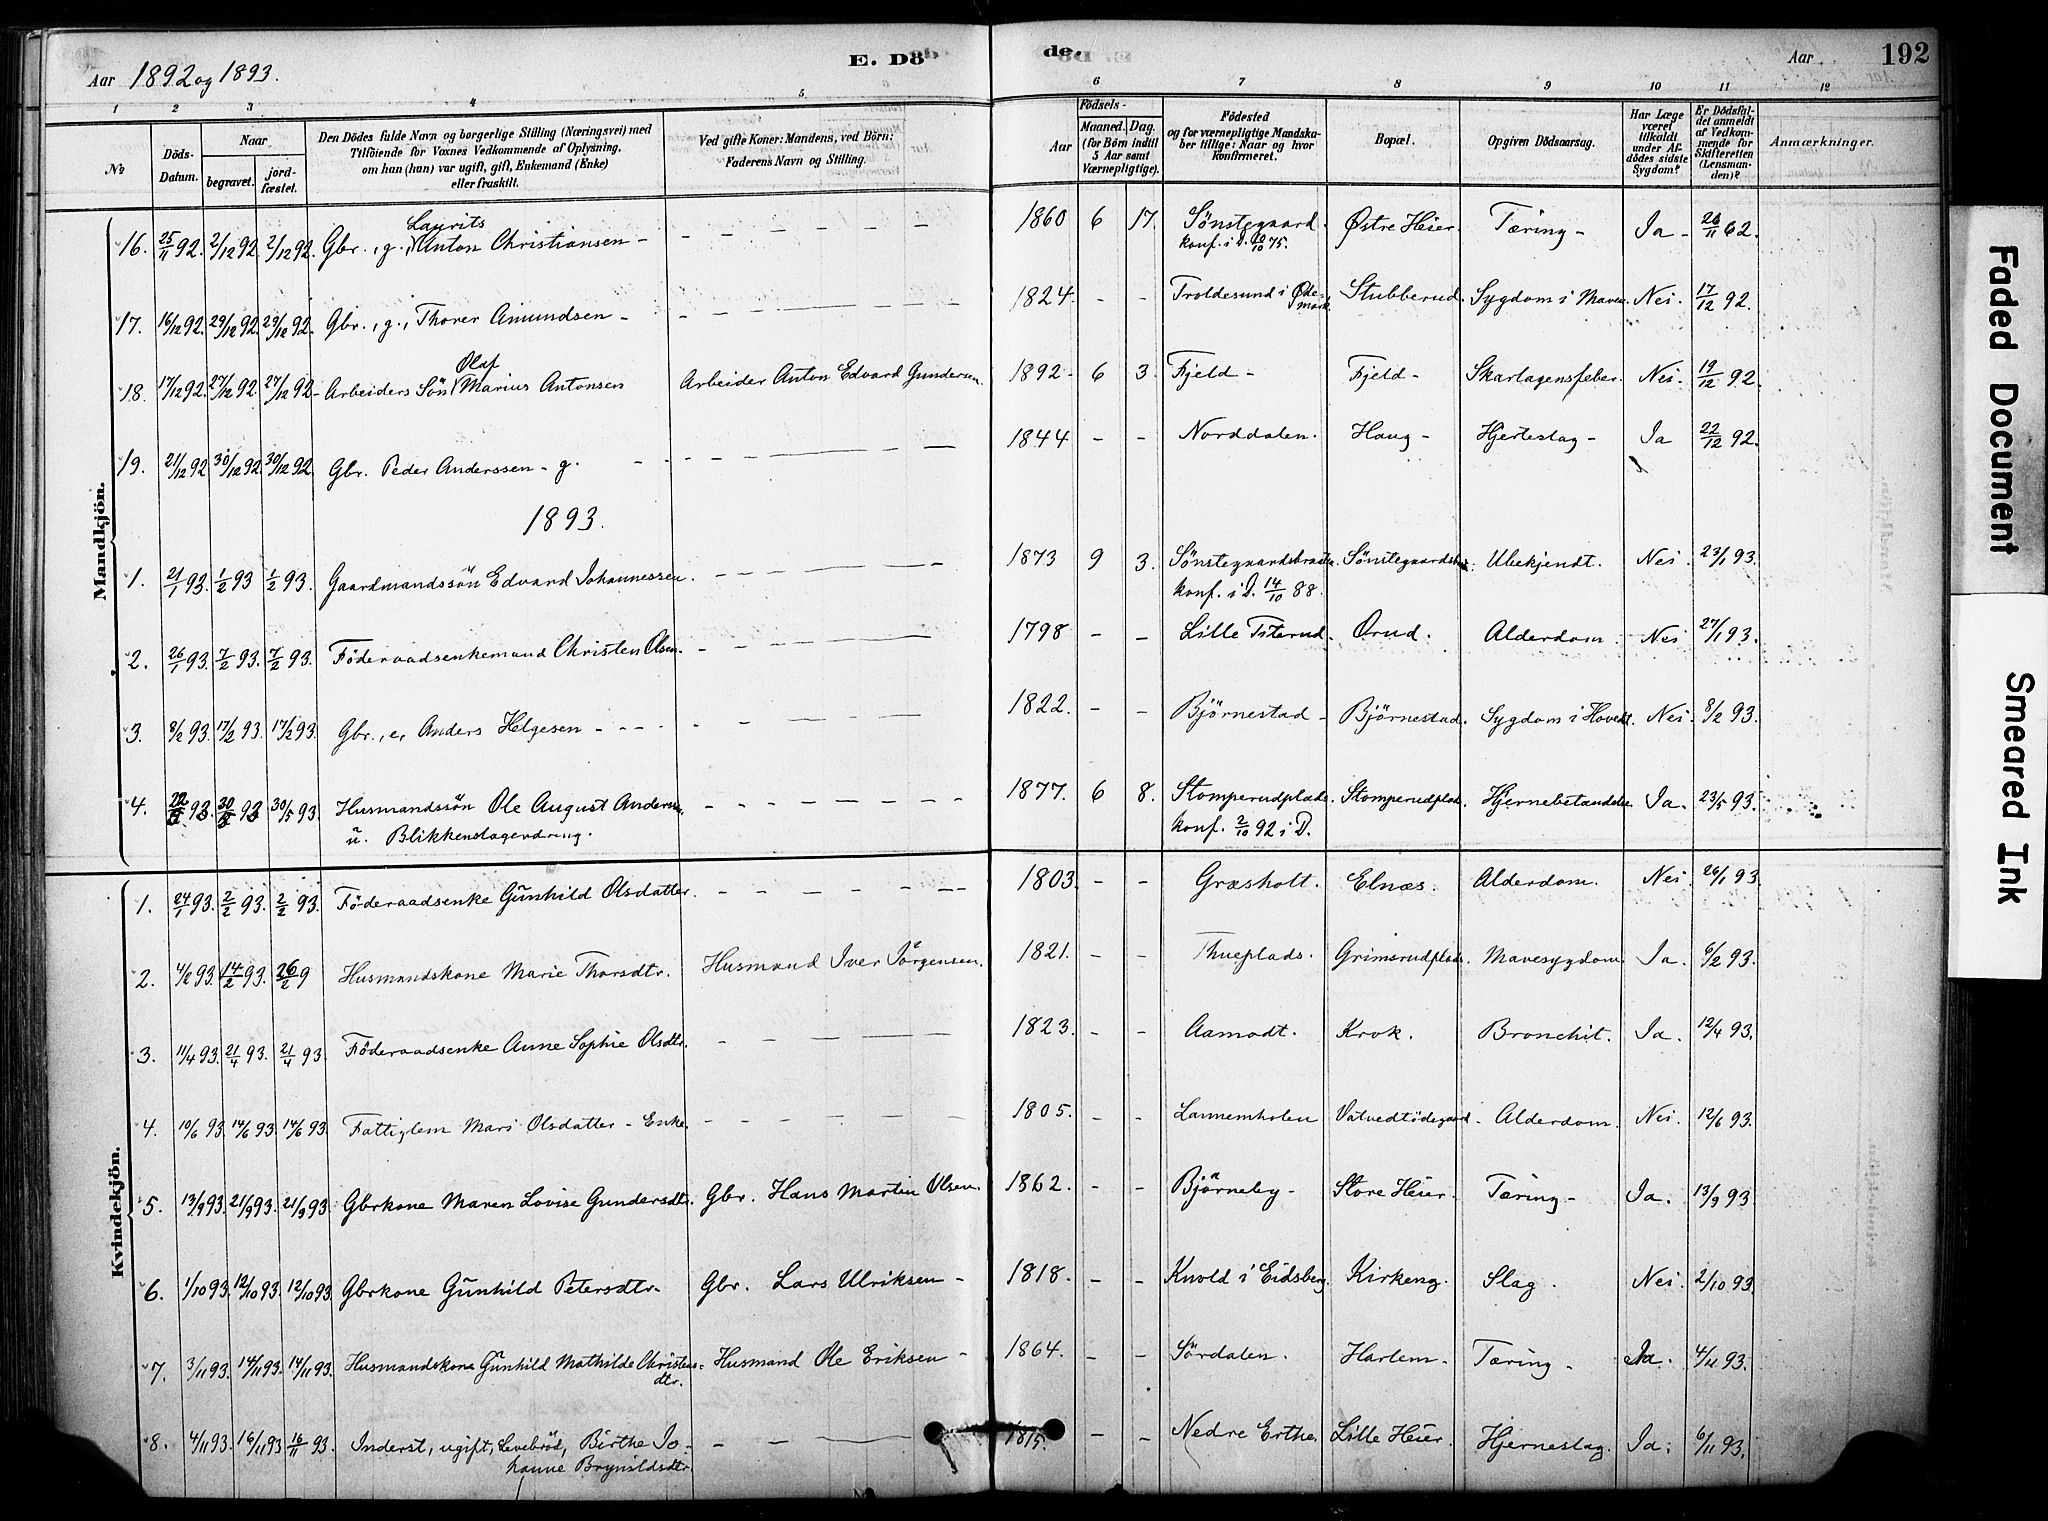 Aar 1892 og 1893.
E. Dö
de.
Aar
192
1 2 3 4 5 6 7 8 9 10 11 12
№
Döds-Datum.
Naar
begravet.
jordfæstet.
Den Dödes fulde Navn og borgerlige Stilling (Næringsvei) med
Tilföiende for Voxnes Vedkommende af Oplysning,
om han (hun) var ugift, gift, Enkemand (Enke)
eller fraskilt.
Ved gifte Koner: Mandens, ved Börn:
Faderens Navn og Stilling.
Aar
Födsels-
Maaned. Dag.
(for Börn indtil
5 Aar samt
Værnepligtige).
Födested
og for værnepligtige Mandska-
ber tillige: Naar og hvor
konfirmeret.
Bopæl.
Opgiven Dödsaarsag.
Har Læge
været
tilkaldt
under Af-
dödes sidste
Sygdom?
Er Dödsfal-
det anmeldt
af Vedkom-
mende for
Skifteretten
(Lensman-
den)?
Anmærkninger.
Mandkjön.
16. 25/11 92. 2/12 92. 2/12 92. Gbr., g., Laurits Anton Christiansen - 1860 6 17. Sönstegaard konf. i D. 10/10 75. Østre Heier. Tæring - Ja - 26/11 62.
17. 16/12 92. 29/12 92. 29/12 92. Gbr., g., Thorer Amundsen - 1824. - - Troldesund i Ødemark. Stubberud. Sygdom i Maven. Nei. 17/12 92.
18. 17/12 92. 27/12 92. 27/12 92. Arbeiders Sön Olaf Marius Antonsen Arbeider Anton Edvard Gundersen. 1892 - 6 3. Fjeld - Fjeld - Skarlagensfeber. Nei. 19/12 92.
19. 21/12 92. 30/12 92. 30/12 92. Gbr. Peder Anderssen - g. 1844 - - Norddalen. Haug - Hjerteslag - Ja 22/12 92.
1893.
1. 21/1 93. 1/2 93 1/2 93. Gaardmandssön Edvard Johannessen. 1873 9 3. Sönstegaardsbraaten. konf. i D. 14/10 88. Ubekjendt. Nei. 23/1 93.
2. 26/1 93. 7/2 93. 7/2 93. Föderaadsenkemand Christen Olsen. 1798 - - Lille Tisterud. Ørud. Alderdom. Nei 27/1 93.
3. 8/2 93. 17/2 93. 17/2 93. Gbr., e, Anders Helgesen - 1822. - - Björnestad - Björnestad. Sygdom i Hovedet. Nei. 8/2 93.
4. 93. 30/5 93. 30/5 93. Husmandssön Ole August Andersen u. Blikkenslagerdreng. 1877. 6 8. Stomperudplads. konf. 2/10 92 i D. Stomperudplads. Hjernebetændelse. Ja. 23/5 93.
Kvindekjön.
1. 24/1 93. 2/2 93. 2/2 93. Föderaadsenke Gunhild Olsdatter. 1803. - - Græsholt. Elnæs. Alderdom. Nei 26/1 93.
2. 4/2 93. 14/2 93. 26/2 9 Husmandskone Marie Thorsdtr. Husmand Iver Jörgensen. 1821. - - Thueplads. Grimsrudplads. Mavesygdom. Ja. 6/2 93.
3. 11/4 93. 21/4 93. 21/4 93. Föderaadsenke Anne Sophie Olsdtr. 1823. - - Aamodt. Krok. Bronchit. Ja. 12/4 93.
4. 10/6 93. 14/6 93. 14/6 93. Fattiglem Mari Olsdatter - Enke. 1805. - - Lannemholen Vatvedtödegaard - Alderdom. Nei. 12/6 93.
5. 13/9 93. 21/9 93. 21/9 93. Gbrkone Maren Lovise Gundersdtr. Gbr. Hans Martin Olsen. 1862. - - Björneby - Store Heier. Tæring - Ja. 13/9 93.
6. 1/10 93. 12/10 93. 12/10 93. Gbrkone Gunhild Petersdtr. Gbr. Lars Ulriksen - 1818. - - Knold i Eidsberg. Kirkeng. Slag. Nei. 2/10 93.
7. 3/11 93. 14/11 93. 14/11 93. Husmandskone Gunhild Mathilde Christensdtr. Husmand Ole Eriksen - 1864. - - Sördalen. Harlem. Tæring - Ja. 4/11 93.
8. 4/11 93. 16/11 93 16/11 93. Inderst, ugift, Levebröd, Birthe Johanne Brynildsdtr. 1815. - - Nedre Erthe. Lille Heier. Hjerneslag. Ja. 6/11 93.
Faded Document
Smeared Ink